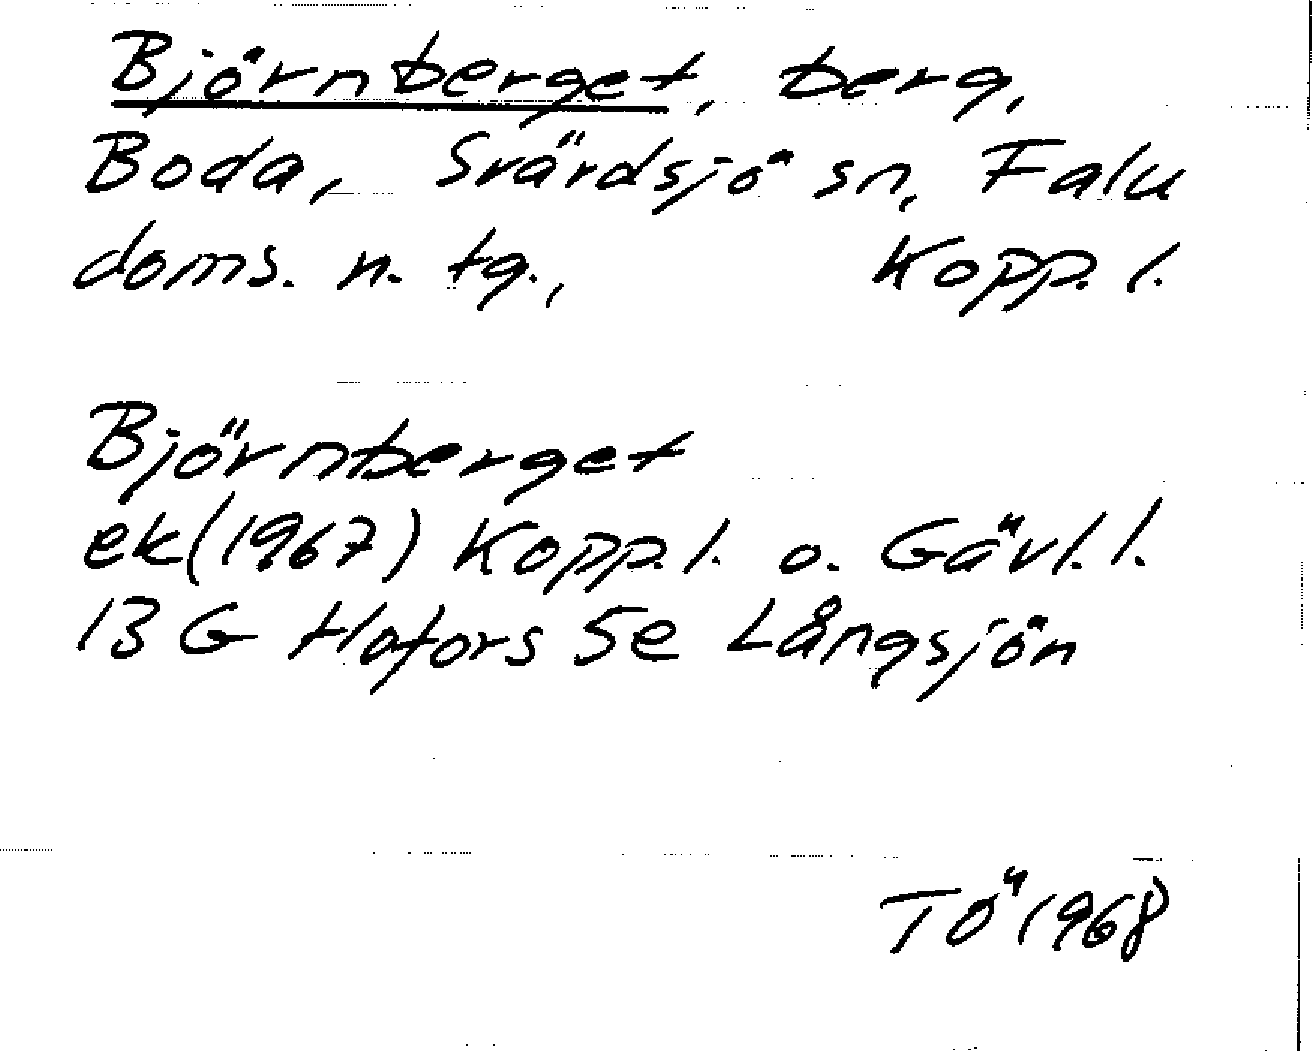 Björnberget, berg,
Boda, Svärdsjö sn, Falu
doms. n. tg., Kopp. l.
Björnberget
ek(1967) Kopp. l. o. Gävl. l.
13 G Hofors 5e Långsjön
TÖ 1968